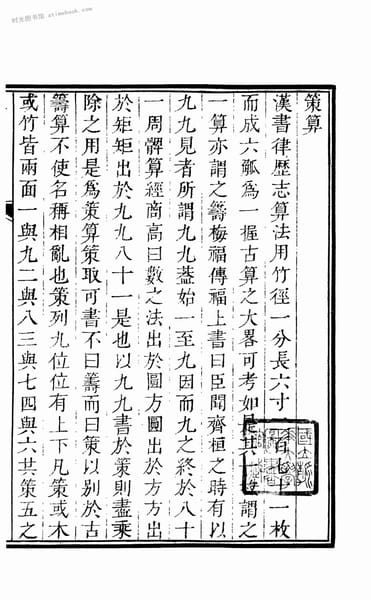 时光图书馆 - xtimebook.com
策算
漢書律歷志算法用竹徑一分長六寸二百七十一枚
而成六觚爲一握古算之大畧可考如是其一枚謂之
一算亦謂之籌梅福傳福上書曰臣聞齊桓之時有以
九九見者所謂九九蓋始一至九因而九之終於八十
一周髀算經商高曰數之法出於圓方圓出於方方出
於矩矩出於九九八十一是也以九九書於策則盡乘
除之用是爲策算策取可書不曰籌而曰策以別於古
籌算不使名稱相亂也策列九位位有上下凡策或木
或竹皆兩面一與九二與八三與七四與六共策五之